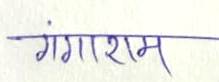 गंगाराम